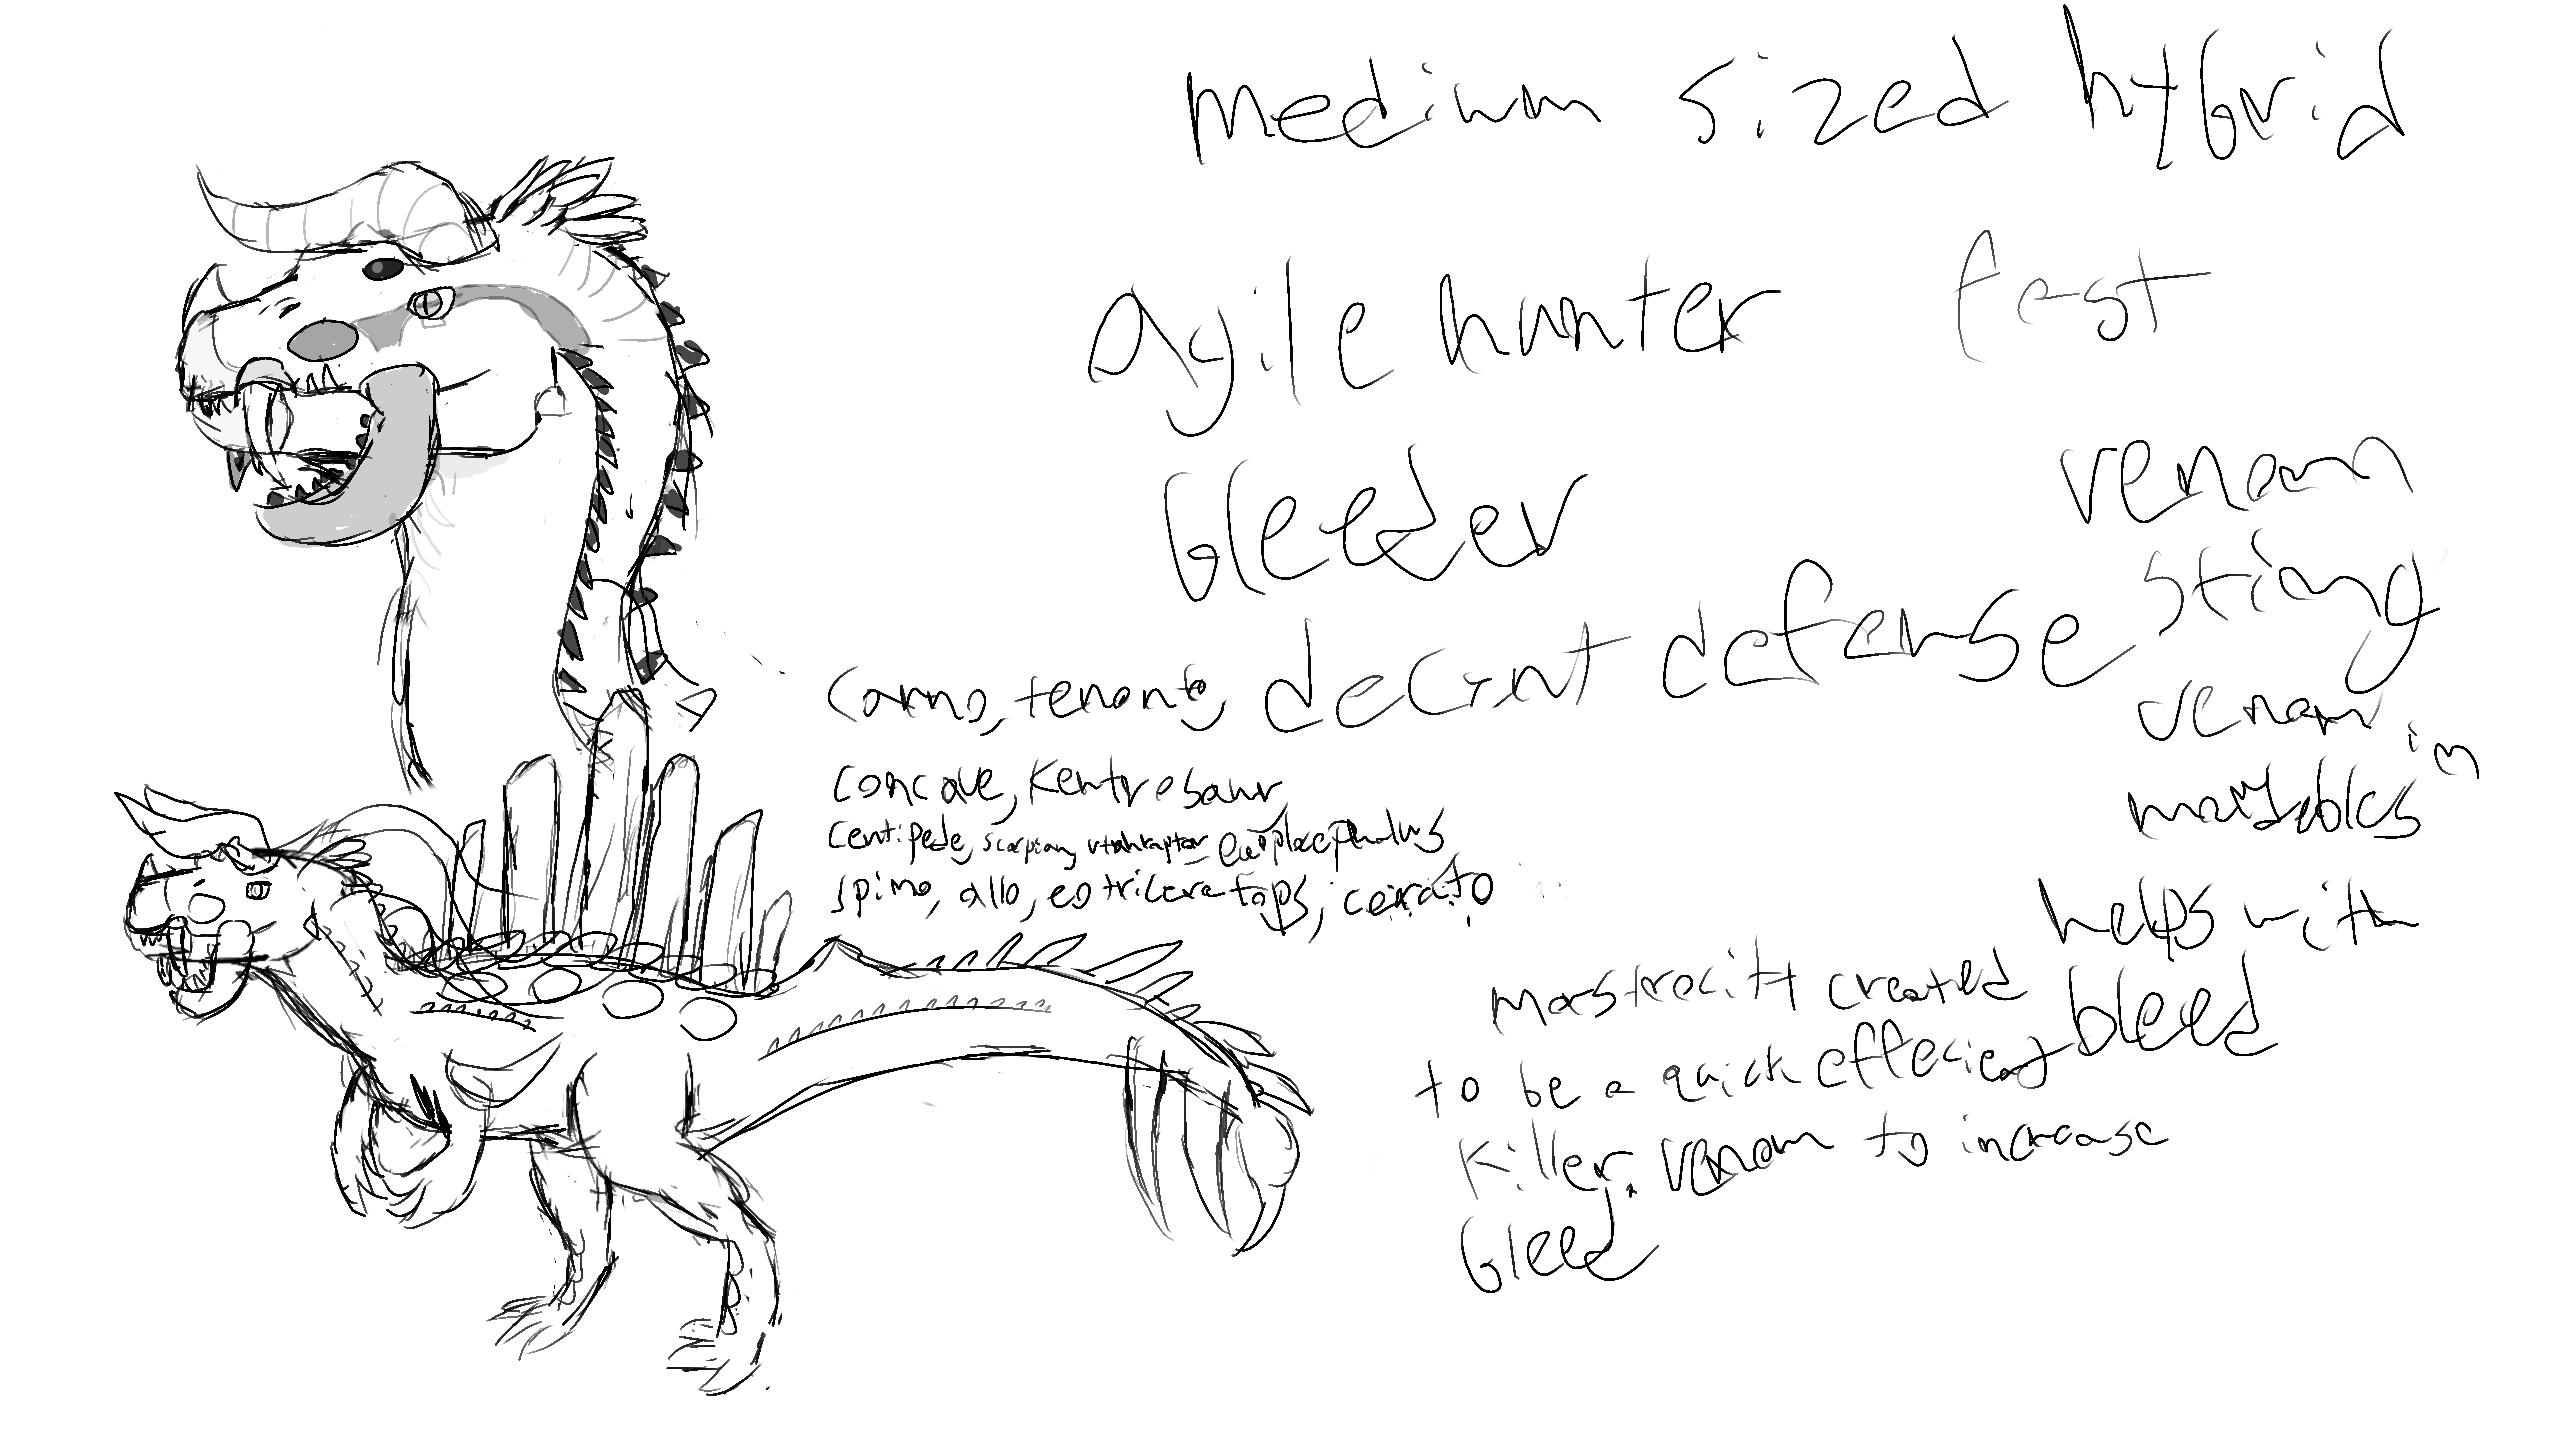 medium sized hybrid
agile hunter fast
bleeder
venom
sting
decent defense
venom in
helps with
bleed
Carno, tenonto,
concave, Kentrosaur
centipede, scorpion, utahraptor
spino, allo, eotriceratops, cerato
created
to be a quick
killer. venom to increase
bleed